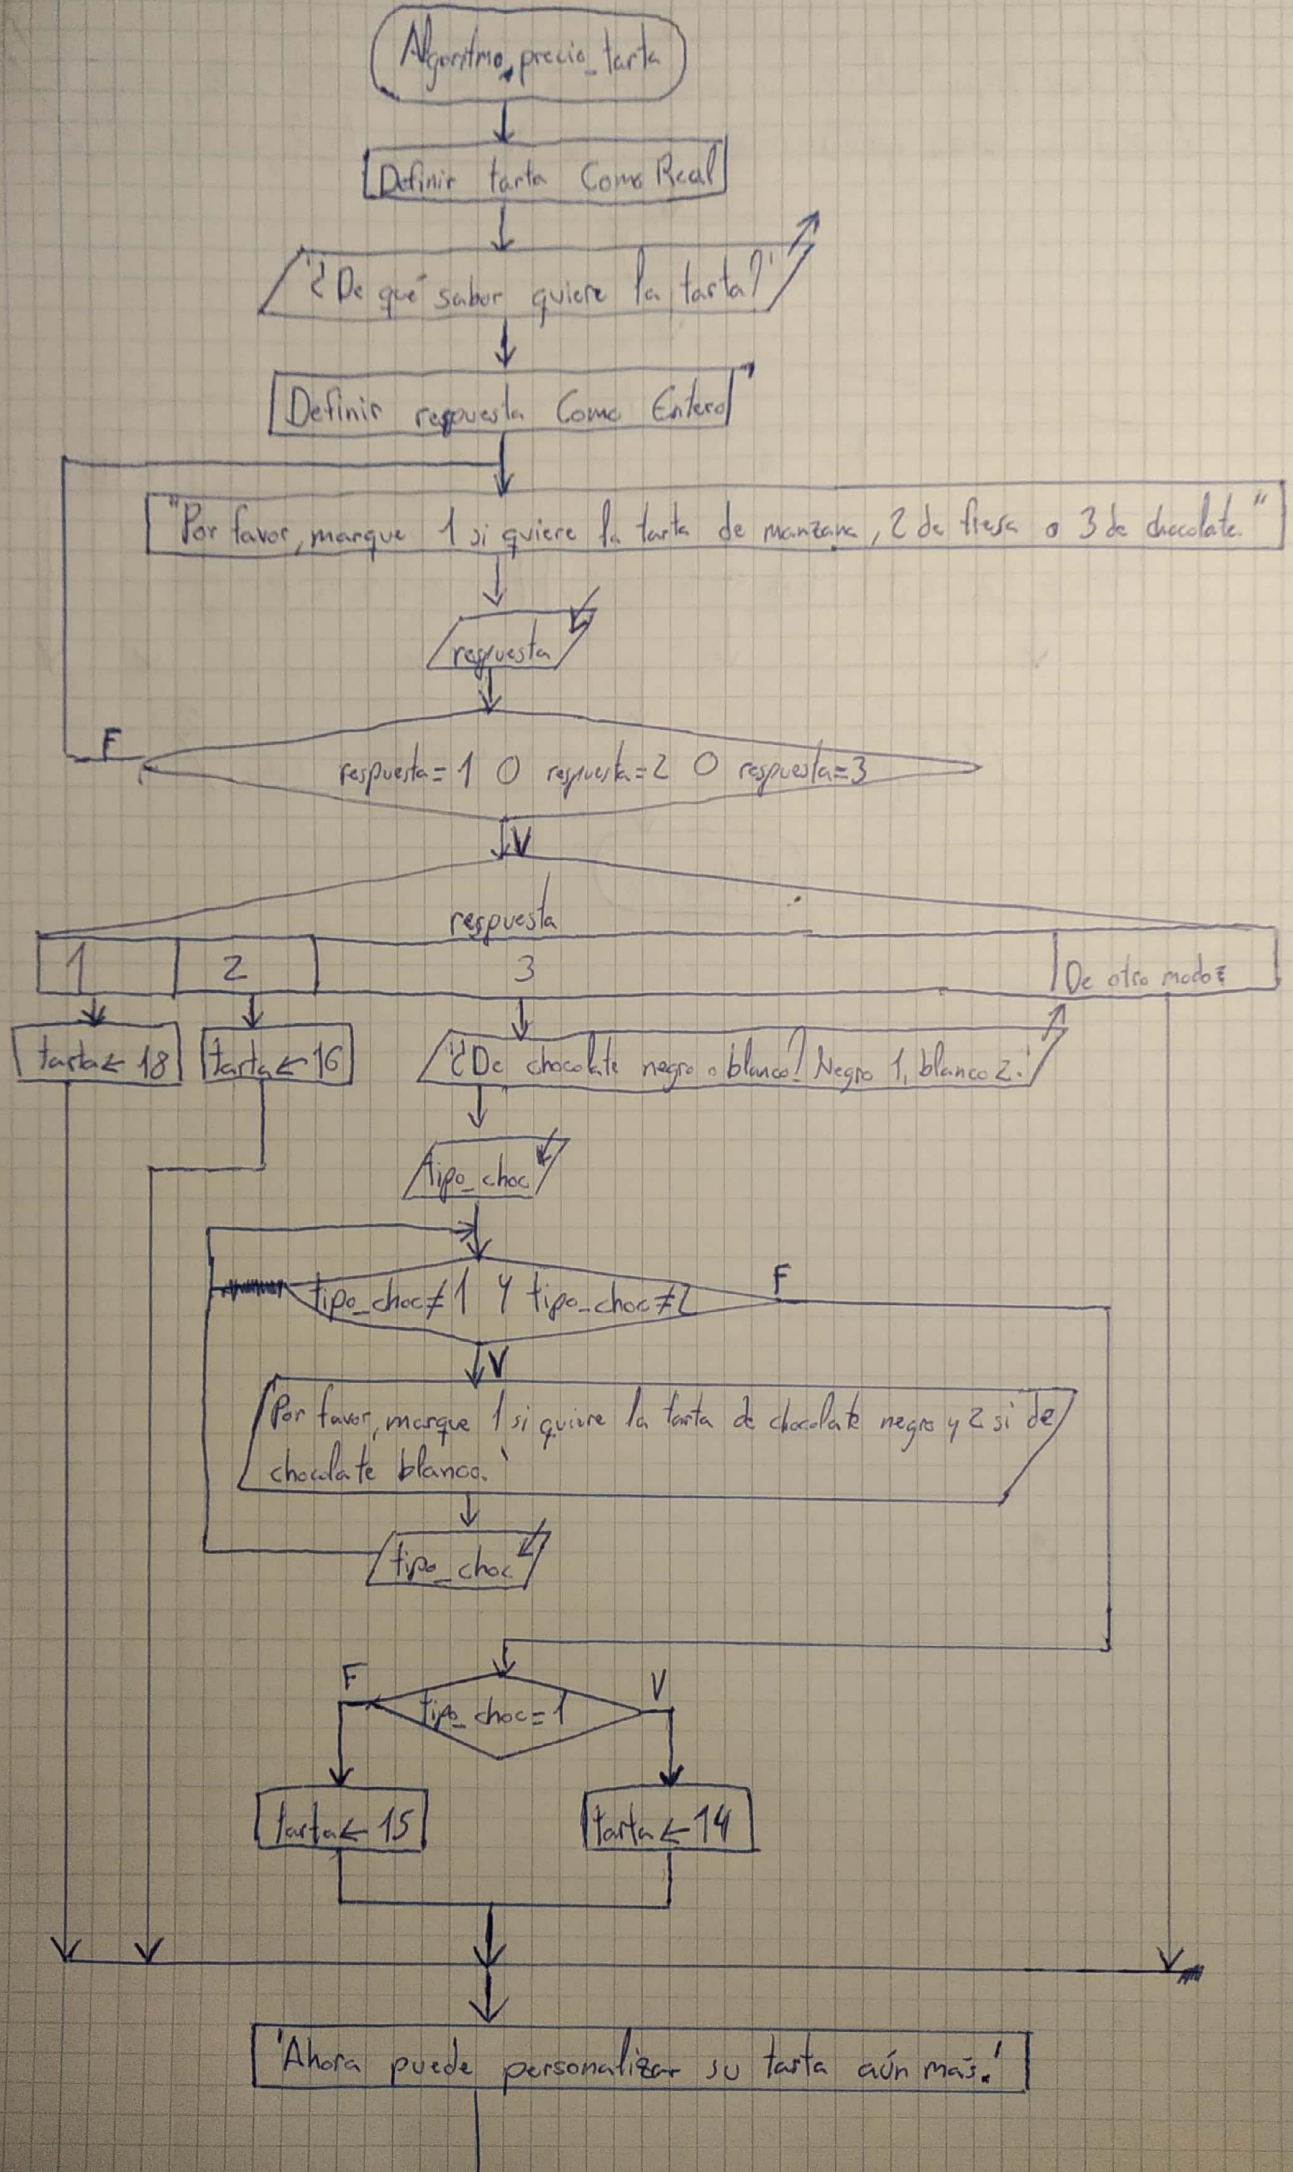 Algoritmo precio_tarta
Definir tarta Como Real
'¿De qué sabor quiere la tarta?'
Definir respuesta Como Entero
"Por favor, marque 1 si quiere la tarta de manzana, 2 de fresa o 3 de chocolate."
respuesta
F
respuesta=1 O respuesta=2 O respuesta=3
V
respuesta
1 2 3 De otro modo:
tarta←18 tarta←16 '¿De chocolate negro o blanco? Negro 1, blanco 2.'
tipo_choc
tipo_choc≠1 Y tipo_choc≠2 F
V
'Por favor, marque 1 si quiere la tarta de chocolate negro y 2 si de
chocolate blanco.'
tipo_choc
F V
tipo_choc=1
tarta←15 tarta←14
'Ahora puede personalizar su tarta aún más.'